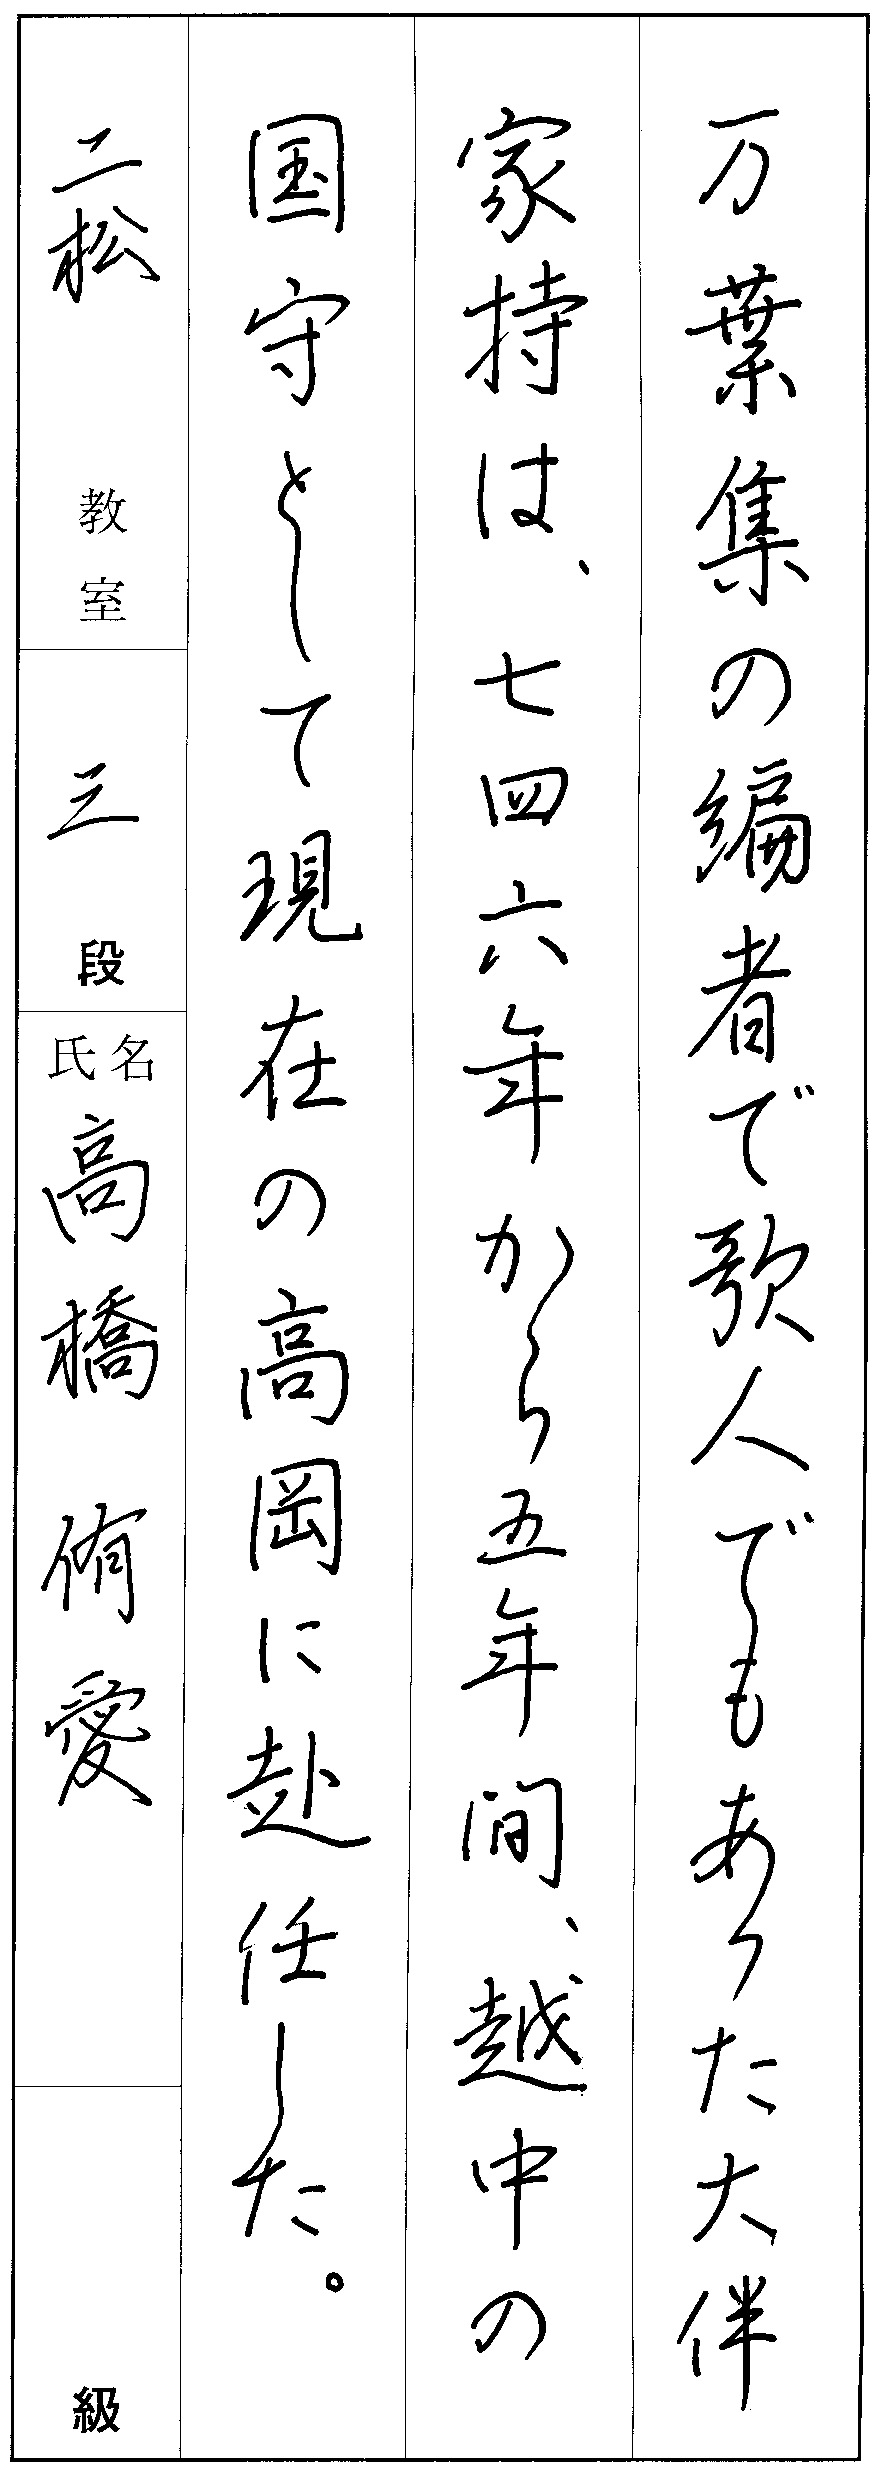 万葉集の編者で歌人でもあった大伴
家持は、七四六年から五年間、越中の
国守として現在の高岡に赴任した。
二松 教室 三 段 氏名 高橋 侑愛 級